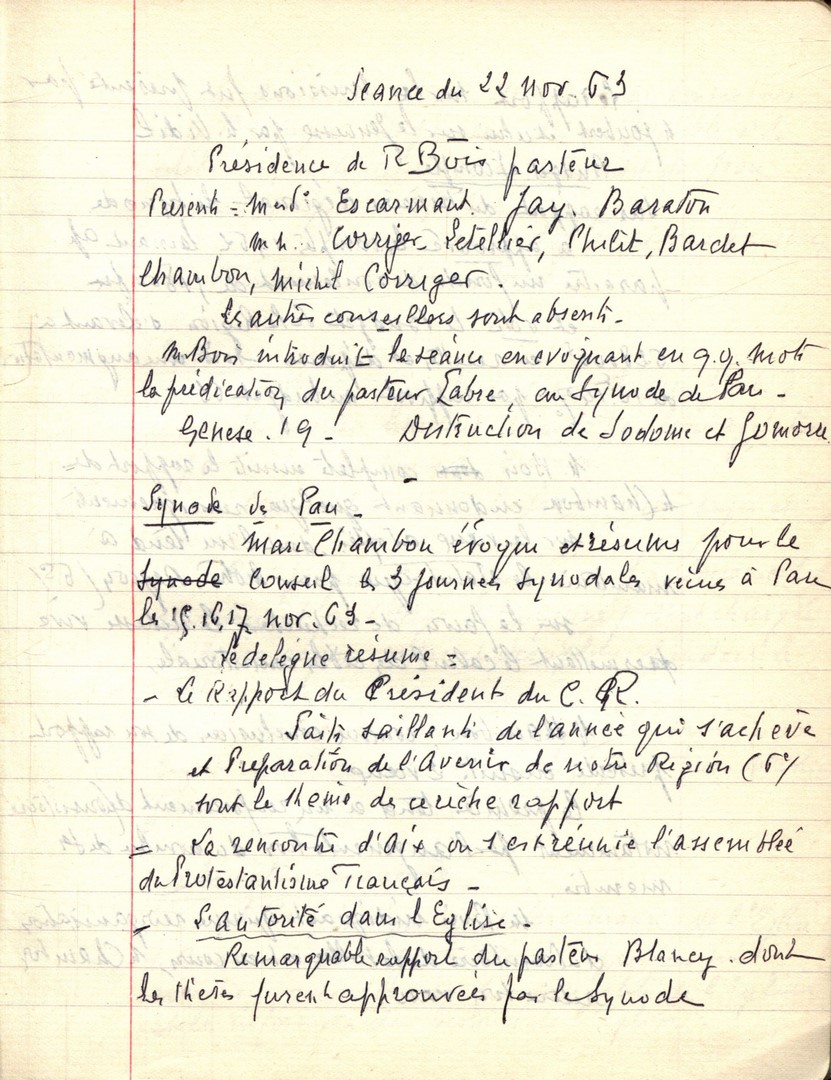 Séance du 22 nov. 63
Présidence de R Bois pasteur
Présents = Mesd^s Escarmant. Jay. Baraton
M M. Corriger, Letellier, Philit, Bardet
Chambon, Michel Corriger.
Les autres conseillers sont absents -
M Bois introduit la séance en évoquant en q.q. mots
la prédication du pasteur Fabre, au Synode de Pau -
Genèse. 19 - Destruction de Sodome et Gomorre
Synode de Pau -
Marc Chambon évoque et résume pour le
Synode Conseil les 3 journées synodales vécues à Pau
les 15, 16, 17 nov. 63 -
Le délégué résume =
- Le Rapport du Président du C. R.
Faits saillants de l'année qui s'achève
et Préparation de l'Avenir de notre Région (6e)
sont le thème de ce riche rapport
= La rencontre d'Aix où s'est réunie l'assemblée
du Protestantisme Français -
- L'autorité dans l'Eglise -
Remarquable rapport du pasteur Blancy. dont
les thèses furent approuvées par le Synode